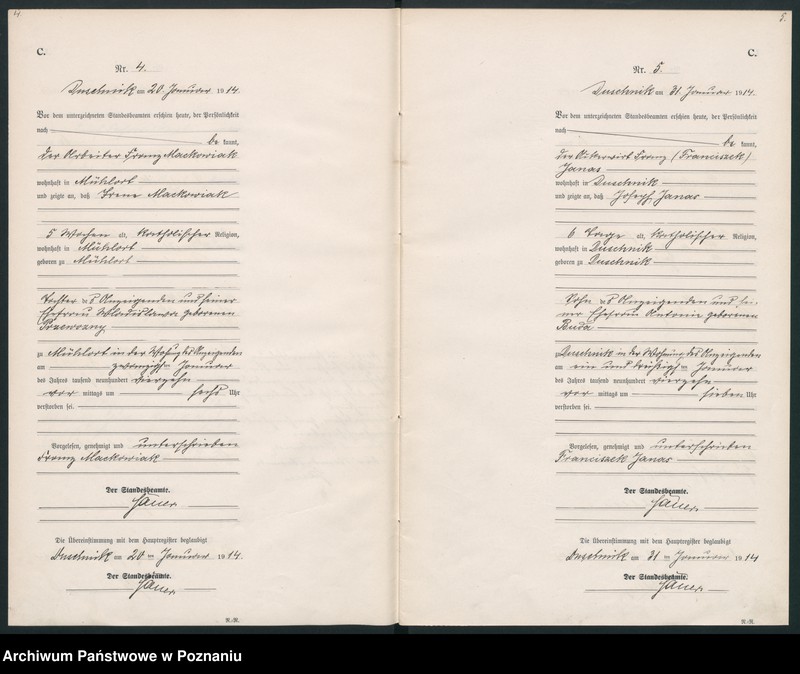 4.
C.
Nr. 4.
Duschnik am 20. Januar 1914.
Vor dem unterzeichneten Standesbeamten erschien heute, der Persönlichkeit
nach
be kannt,
der Arbeiter Franz Mackowiak
wohnhaft in Mühlort
und zeigte an, daß Irene Mackowiak
5 Wochen alt, katholischer Religion,
wohnhaft in Mühlort
geboren zu Mühlort
Tochter des Anzeigenden und seiner
Ehefrau Wladislawa geborenen
zu Mühlort in der Wohnung des Anzeigenden
am zwanzigsten Januar
des Jahres tausend neunhundert vierzehn
vor mittags um sechs Uhr
verstorben sei.
Vorgelesen, genehmigt und unterschrieben
Franz Mackowiak
Der Standesbeamte.
Die Übereinstimmung mit dem Hauptregister beglaubigt
Duschnik am 20 ten Januar 1914.
Der Standesbeamte.
R.-R.
5.
C.
Nr. 5.
Duschnik am 31. Januar 1914.
Vor dem unterzeichneten Standesbeamten erschien heute, der Persönlichkeit
nach
be kannt,
der Ackerwirt Franz (Franciszek)
Janas
wohnhaft in Duschnik
und zeigte an, daß Joseph Janas
6 Tage alt, katholischer Religion,
wohnhaft in Duschnik
geboren zu Duschnik
Sohn des Anzeigenden und sei-
ner Ehefrau Antonie geborenen
Buda
zu Duschnik in der Wohnung des Anzeigenden
am ein und dreißigsten Januar
des Jahres tausend neunhundert vierzehn
vor mittags um sieben Uhr
verstorben sei.
Vorgelesen, genehmigt und unterschrieben
Franciszek Janas
Der Standesbeamte.
Die Übereinstimmung mit dem Hauptregister beglaubigt
Duschnik am 31 ten Januar 1914
Der Standesbeamte.
R.-R.
Archiwum Państwowe w Poznaniu